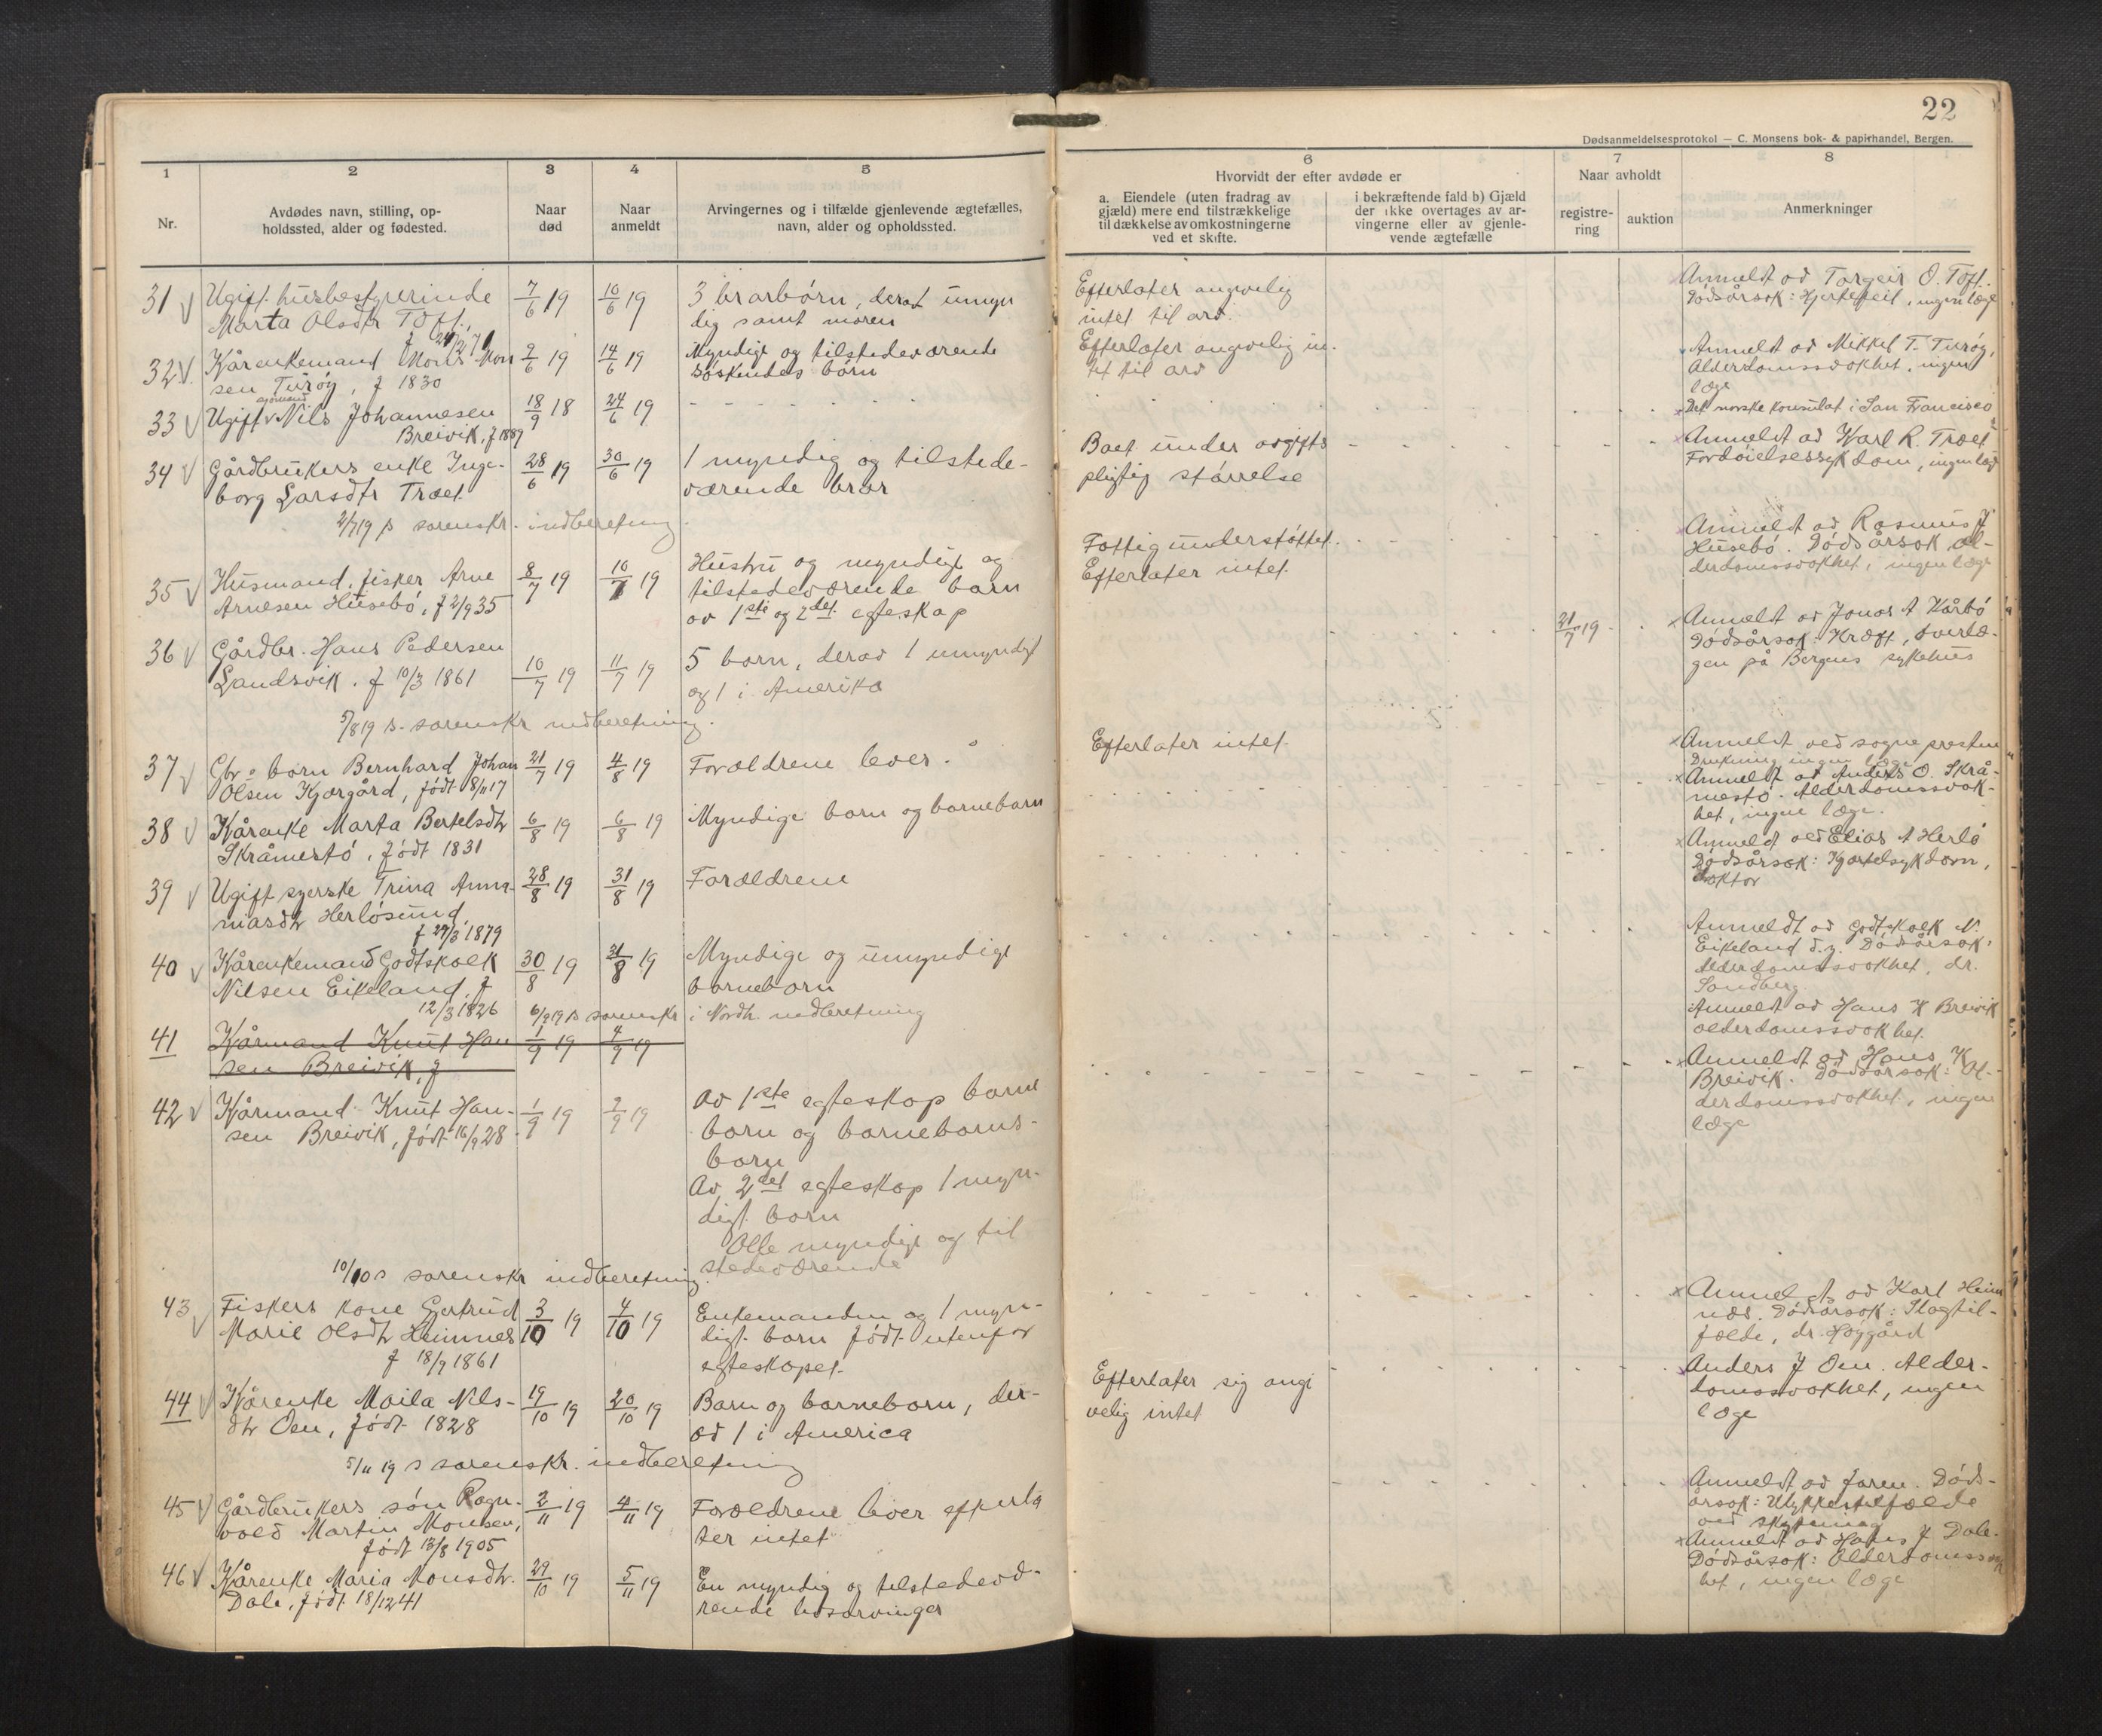 22
Dødsanmeldelsesprotokol — C. Monsens bok- & papirhandel, Bergen.
1 2 3 4 5
Nr.
Avdødes navn, stilling, op-
holdssted, alder og fødested.
Naar
død
Naar
anmeldt
Arvingernes og i tilfælde gjenlevende ægtefælles,
navn, alder og opholdssted.
6 7 8
Hvorvidt der efter avdøde er
a. Eiendele (uten fradrag av
gjæld) mere end tilstrækkelige
til dækkelse av omkostningerne
ved et skifte.
i bekræftende fald b) Gjæld
der ikke overtages av ar-
vingerne eller av gjenle-
vende ægtefælle
Naar avholdt
registre-
ring
auktion
Anmerkninger
31 Ugift husbestyrerinde 7/6 19 10/6 19 3 brorbørn, derav umyn
Marta Olsdtr Toft, dig samt moren
Efterlater angivelig
intet til arv.
Anmeldt av Torgeir O. Toft.
Dødsårsak: Hjertefeil, ingen læge
32 Kårenkemand Mons Mon 2/6 19 14/6 19 Myndige og tilstedeværende
sen Turøy, f 1830 søskendes børn
Efterlater angivelig in-
tet til arv
Anmeldt av Mikkel T. Turøy,
Alderdomssvakhet, ingen
læge
33 Ugift Nils Johannesen 18/9 18 24/6 19
Breivik, f 1889
Det norske konsulat i San Francisco
34 Gårdbrukers enke Inge- 28/6 19 30/6 19 1 myndig og tilstede-
borg Larsdtr Træet værende bror
Boet under avgifts
pligtig størrelse
Anmeldt av Karl R. Træet
Fordøielsessykdom, ingen læge
2/7 19 s sorenskr. indberetning.
35 Husmand, fisker Arne 8/7 19 10/7 19 Hustru og myndige og
Arnesen Husebø, f 2/9 35 tilstedeværende barn
av 1ste og 2det egteskap
Fattigunderstøttet.
Efterlater intet.
Anmeldt av Rasmus J
Husebø. Dødsårsak al-
derdomssvakhet, ingen læge
36 Gårdbr. Hans Pedersen 10/7 19 11/7 19 5 barn, derav 1 umyndigt
Landsvik. f 10/3 1861 og 1 i Amerika
21/7 19
Anmeldt av Jonas A Kårbø
Dødsårsak: Kræft, overlæ-
gen på Bergens sykehus
5/8 19 s. sorenskr indberetning.
37 Gbr barn Bernhard Johan 21/7 19 4/8 19 Forældrene lever.
Olsen Kjærgård, født 8/11 17
Efterlater intet.
Anmeldt ved sognepresten
Drukning ingen læge
38 Kårenke Marta Bertelsdtr 6/8 19 6/8 19 Myndige barn og barnebarn
Skråmestø, født 1831
Anmeldt av Anders O. Skrå-
mestø. Alderdomssvak-
het, ingen læge.
39 Ugift syerske Trina Anna 28/8 19 31/8 19 Forældrene
niasdtr Herløsund
f 29/3 1879
Anmeldt av Elias A Herlø
Dødsårsak: Kjertelsykdom,
doktor
40 Kårenkemand Godtskalk 30/8 19 31/8 19 Myndige og umyndige
Nilsen Eikeland, f barnebarn
12/3 1826
Anmeldt av Godtskalk N.
Eikeland d.y. Dødsårsak:
Alderdomssvakhet, dr.
Sandberg.
6/9 19 s sorenskr i Nordh. indberetning
41 Kårmand Knut Han 1/9 19 4/9 19
sen Breivik, f
Anmeldt av Hans K Breivik
alderdomssvakhet.
42 Kårmand Knut Han- 1/9 19 2/9 19 Av 1ste egteskap barne
sen Breivik, født 16/9 28 barn og barnebarns-
barn
Av 2det egteskap 1 myn-
digt barn
Alle myndige og til
stedeværende
Anmeldt av Hans K
Breivik. Dødsårsak: Al-
derdomssvakhet, ingen
læge
10/10 s sorenskr indberetning.
43 Fiskers kone Gertrud 3/10 19 4/10 19 Enkemanden og 1 myn-
Marie Olsdtr Heimnes digt barn født utenfor
f 18/9 1861 egteskapet.
Anmeldt av Karl Heim
næs. Dødsårsak: Slagtil-
fælde, dr. Høggård
44 Kårenke Maila Nils- 19/10 19 20/10 19 Barn og barnebarn, der-
dtr Oen, født 1828 av 1 i America
Efterlater sig angi
velig intet
Anders J Oen. Alder-
domssvakhet, ingen
læge
5/11 19 s sorenskr. indberetning
45 Gårdbrukers søn Ragn- 2/11 19 4/11 19 Forældrene lever efterla
vald Martin Monsen, ter intet
født 13/8 1905
Anmeldt av faren. Døds-
årsak: Ulykkestilfælde
ved skytning
46 Kårenke Maria Monsdtr. 29/10 19 5/11 19 En myndig og tilstedevæ-
Dale, født 18/12 41 rende livsarvinger
Anmeldt av Hans J. Dale.
Dødsårsak: Alderdomssvak
het, ingen læge